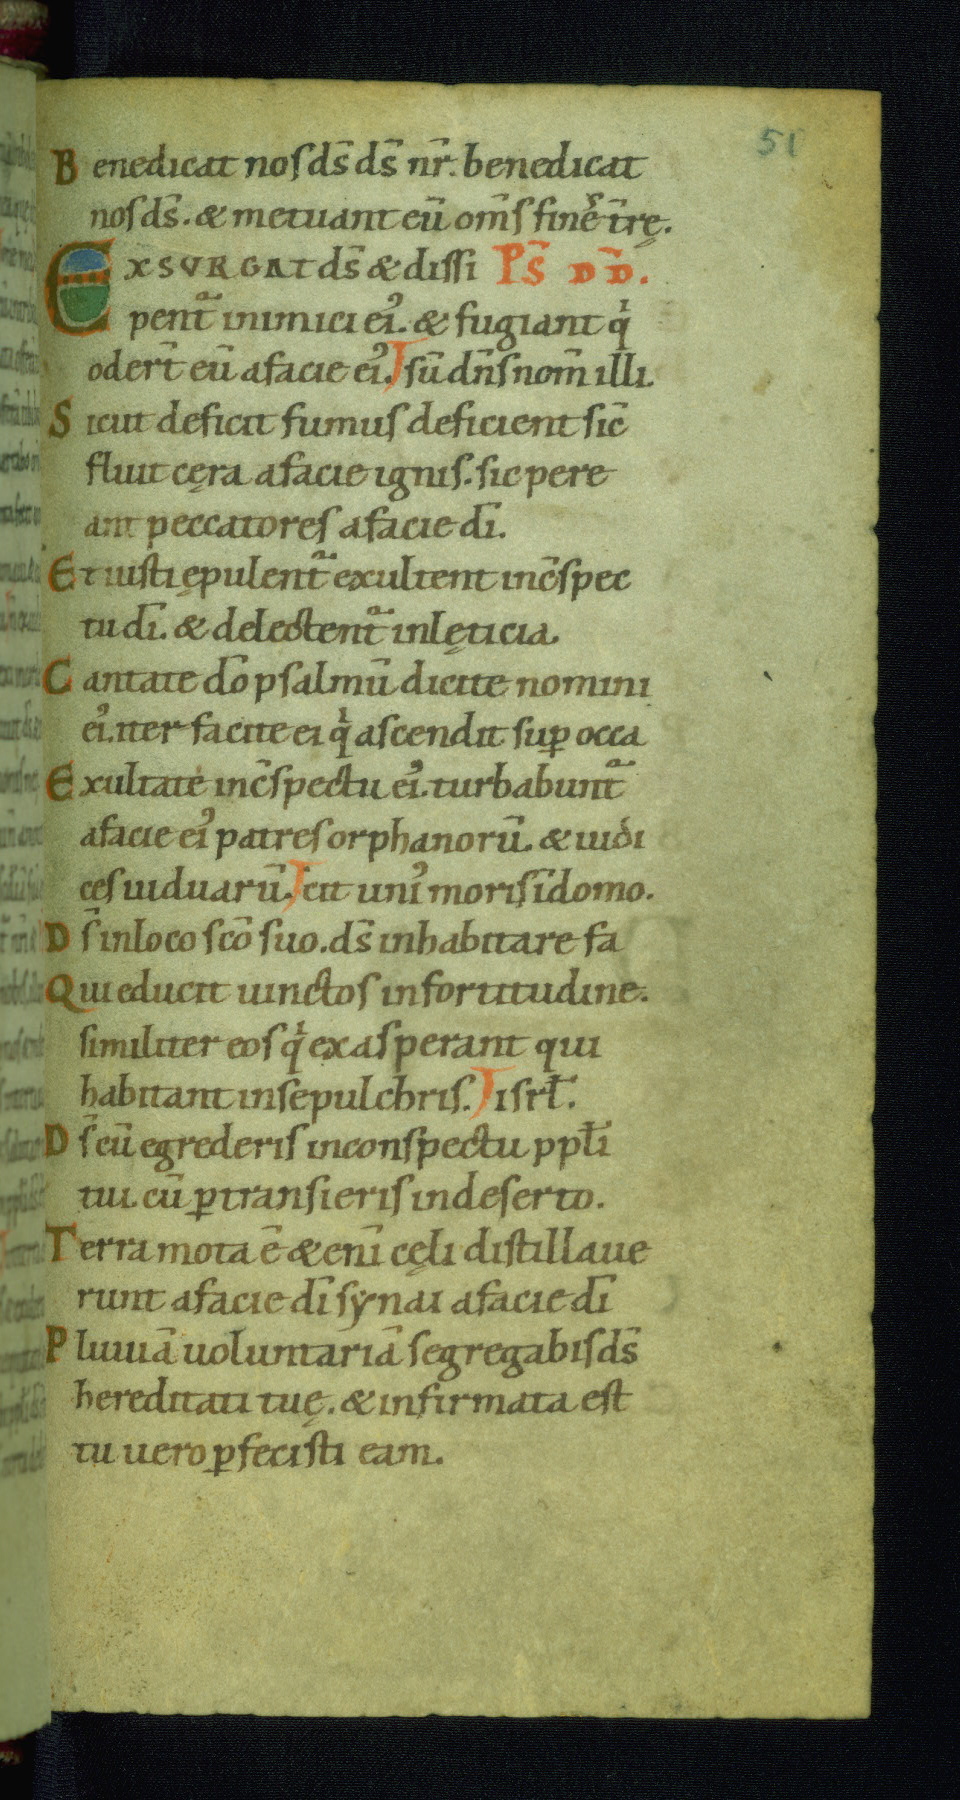 51
Benedicat nos ds̄ ds̄ nr̄. benedicat
nos ds̄. & metuant eū om̄s finē tr̄ę.
EXSURGAT ds̄ & dissi Ps̄ DD̄.
pent̄ inimici ei᾿. & fugiant q̇
oder̄t eū a facie ei᾿. sū dn̄s nom̄ illi.
Sicut deficit fumus deficient sic̄
fluit cęra a facie ignis. sic pere
ant peccatores a facie dī.
Et iusti ępulent̄ exultent in c̄spec
tu dī. & delectent̄ in lęticia.
Cantate dō psalmū dicite nomini
ei᾿. iter facite ei q̇ ascendit suꝑ occa
Exultate in c̄spectu ei᾿. turbabunt̄
a facie ei᾿ patres orphanorū. & iudi
ces uiduarū. cit uni᾿ moris ī domo.
Ds̄ in loco scō suo. ds̄ inhabitare fa
Qui educit uinctos in fortitudine.
similiter eos q̇ exasperant qui
habitant in sepulchris. isrł.
Ds̄ cū egrederis in conspectu ppłi
tui. cū ꝑtransieris in deserto.
Terra mota ē & enī cęli distillaue
runt a facie dī synai a facie dī
Pluuiā uoluntariā segregabis ds̄
hereditati tuę. & infirmata est
tu uero ꝑfecisti eam.